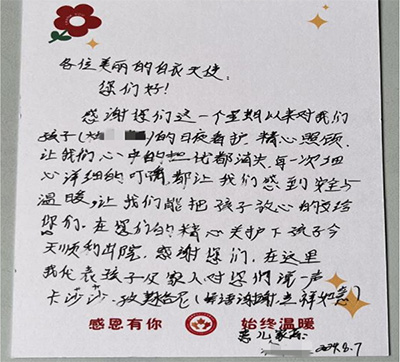 各位美丽的白衣天使:
您们好!
感谢您们这一个星期以来对我们
孩子( )的日夜看护,精心照顾,
让我们心中的担忧都消失,每一次细
心详细的叮嘱,都让我们感到安全与
温暖,让我们能把孩子放心的交给
您们.在您们的精心关护下孩子今
天顺利出院,感谢您们,在这里
我代表孩子及家人对您们说一声
卡莎莎.孜莫格尼(彝语谢谢,吉祥如意)
感恩有你 始终温暖
患儿家属